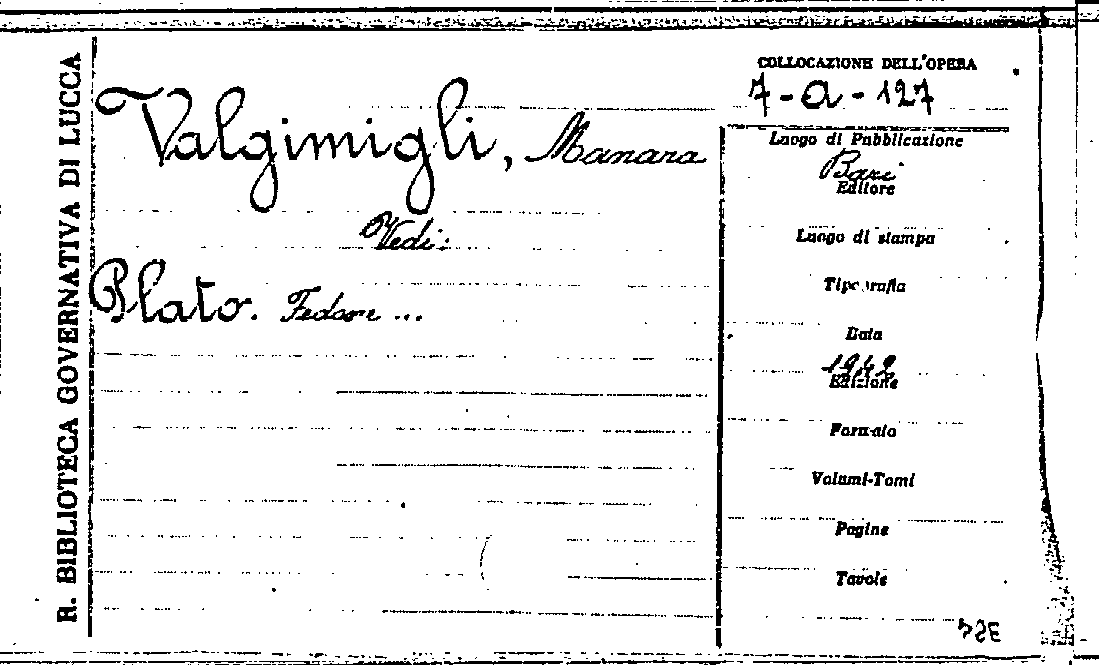 R. BIBLIOTECA GOVERNATIVA DI LUCCA
Valgimigli, Manara
Vedi:
Plato. Fedone ...
COLLOCAZIONE DELL'OPERA
7-a-127
Luogo di Pubblicazione
Bari
Editore
Luogo di stampa
Tipografia
Data
1942
Edizione
Formato
Volumi-Tomi
Pagine
Tavole